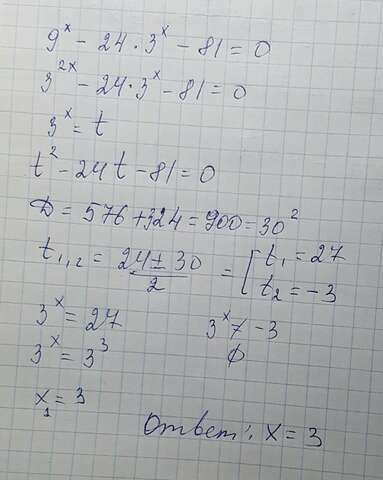 9^x - 24 · 3^x - 81 = 0
3^{2x} - 24 · 3^x - 81 = 0
3^x = t
t^2 - 24t - 81 = 0
D = 576 + 324 = 900 = 30^2
t_{1,2} = \frac{24 ± 30}{2} = [ t_1 = 27
t_2 = -3
3^x = 27 3^x 7 - 3
3^x = 3^3 ф
x_1 = 3
Ответ: x = 3